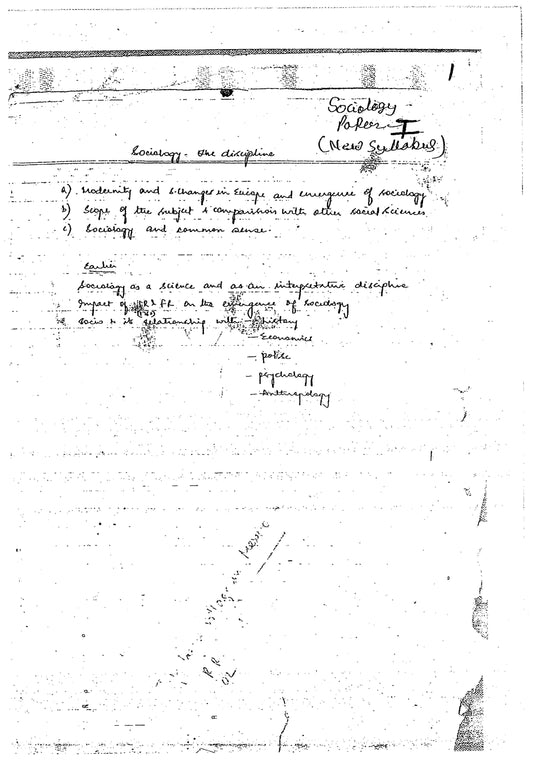 1
Sociology
Paper - I
(New Syllabus)
Sociology - the discipline
a) Modernity and S. changes in Europe and emergence of sociology
b) Scope of the subject & comparison with other social sciences.
c) Sociology and common sense.
Earlier
Sociology as a science and as an interpretative discipline
Impact of IR & FR on the emergence of sociology
Socio & its relationship with - History
- Economics
- polsc
- psychology
- Anthropology